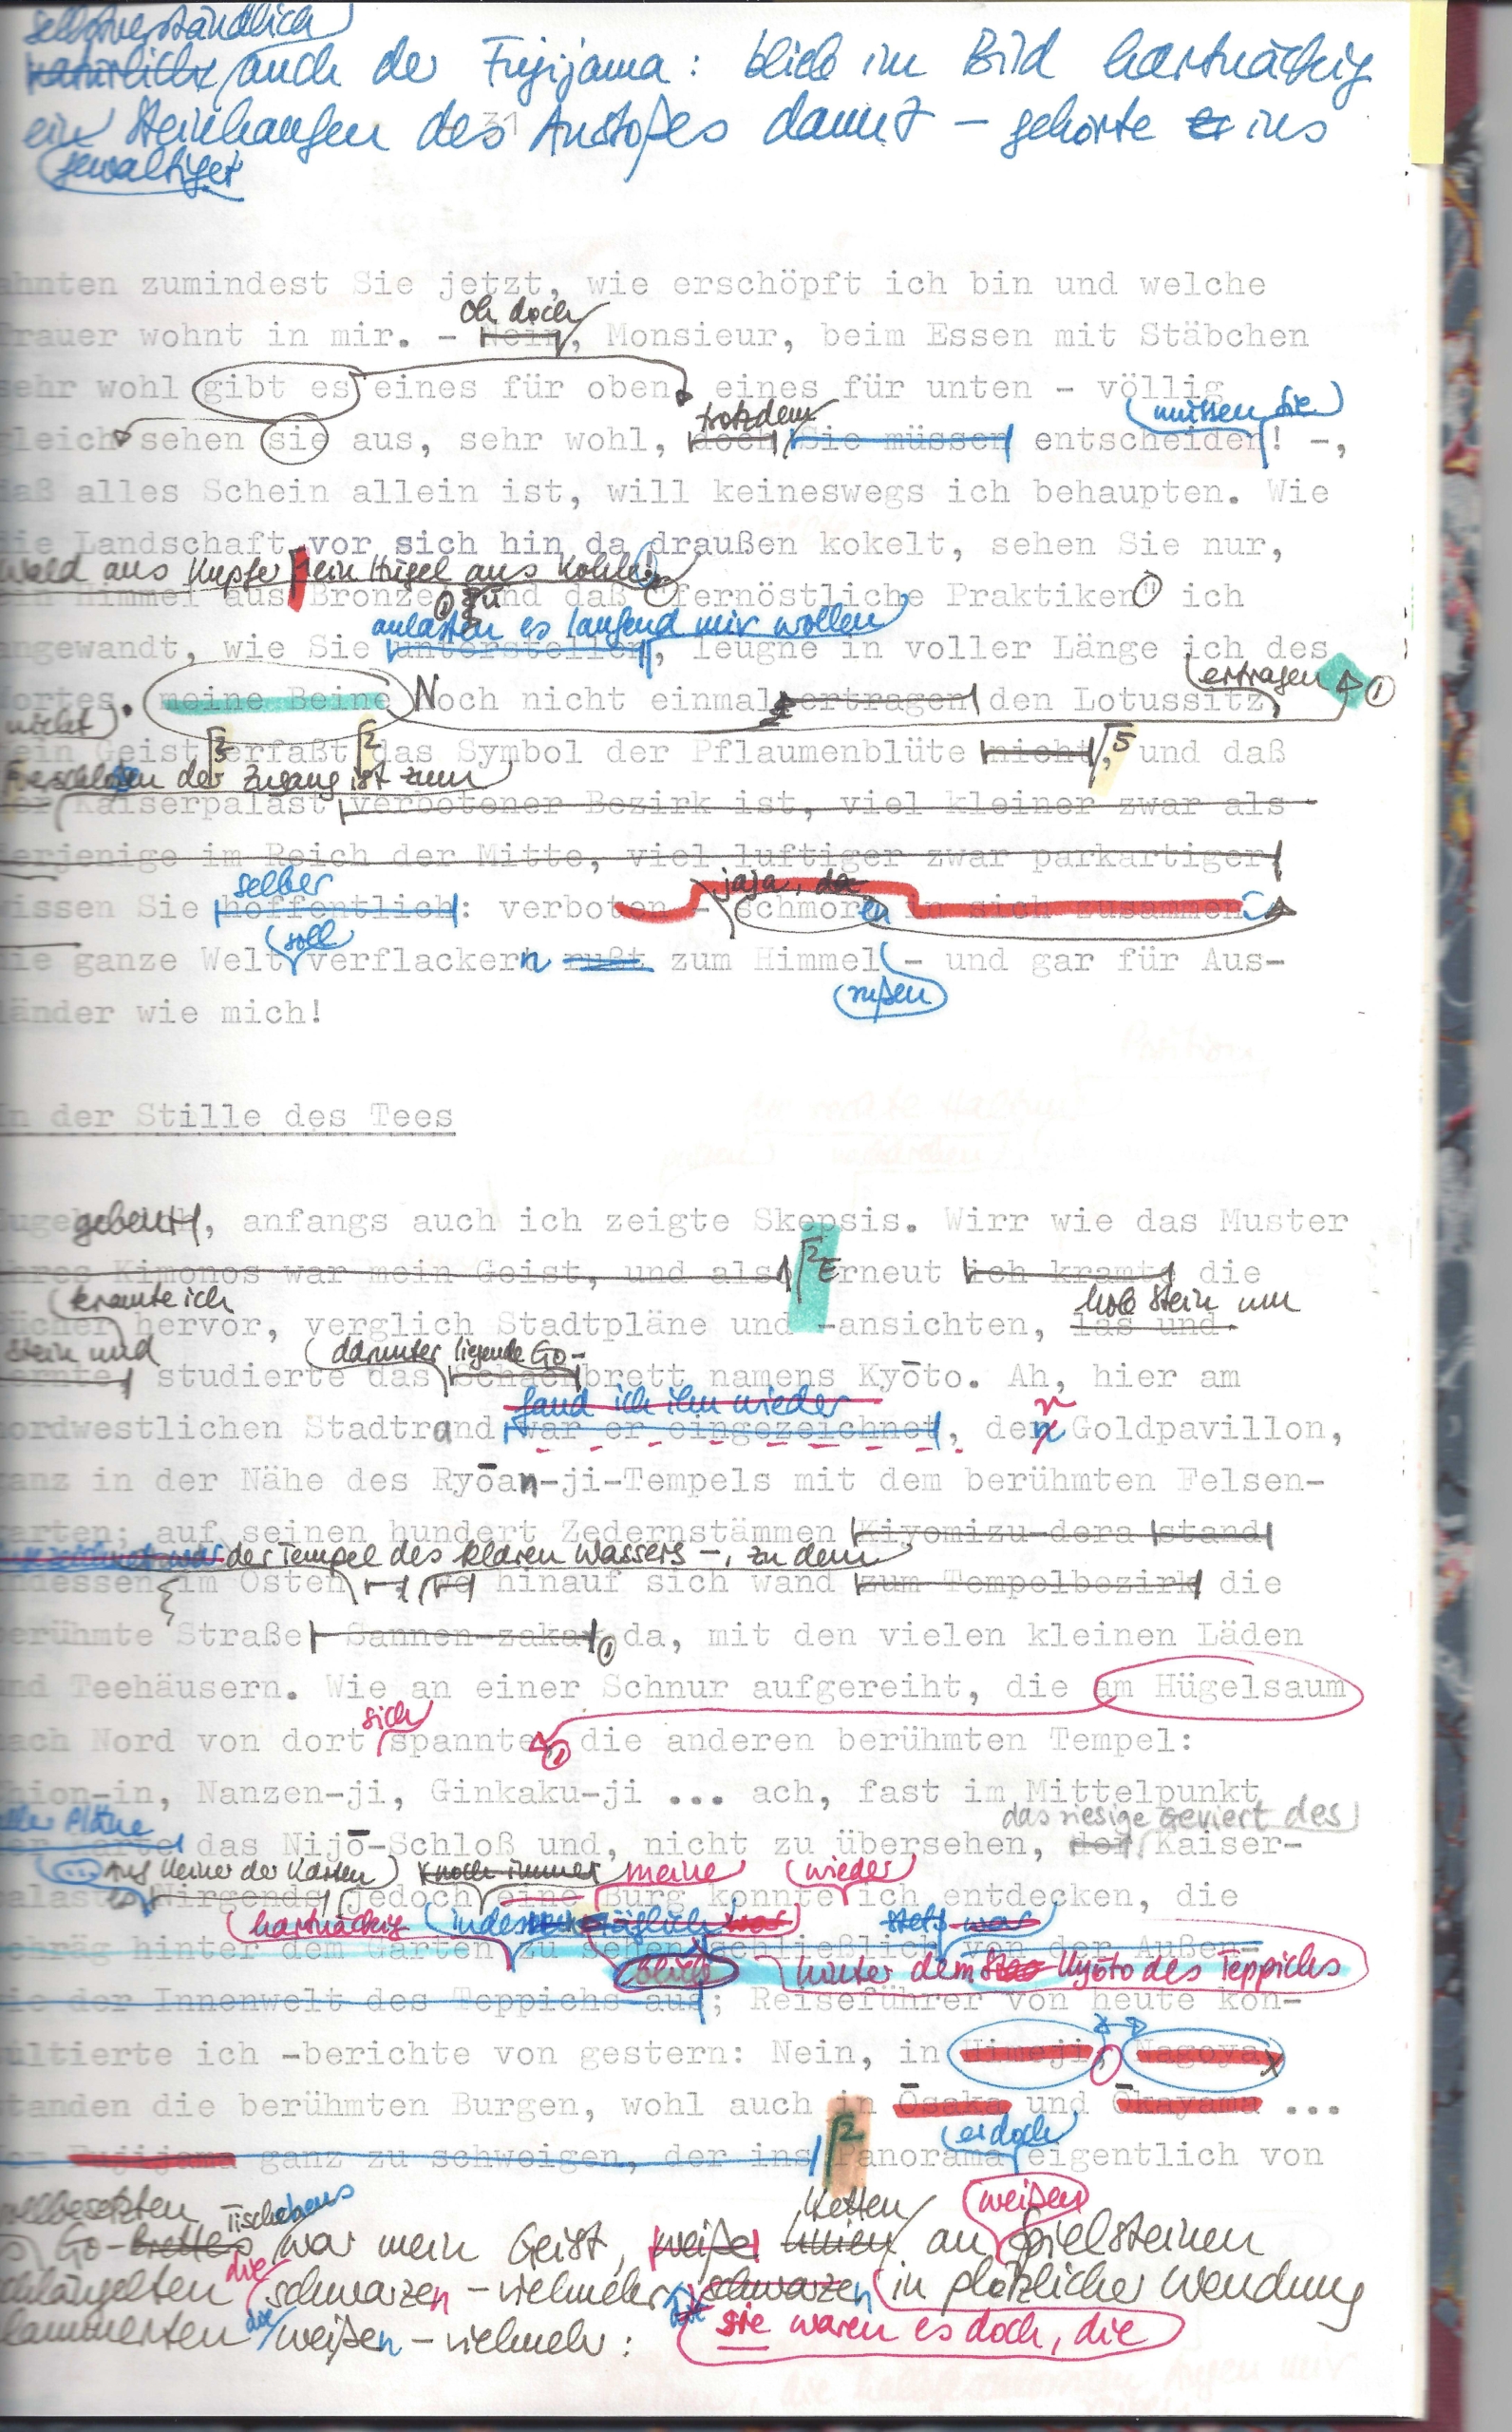 selbstverständlich
natürlich auch der Fujijama: blieb im Bild hartnäckig
ein Steinhaufen des Anstoßes damit – gehörte er ins
gewaltiger
31
ahnten zumindest Sie jetzt, wie erschöpft ich bin und welche
oh doch
Trauer wohnt in mir. – Nein, Monsieur, beim Essen mit Stäbchen
sehr wohl gibt es eines für oben, eines für unten – völlig
trotzdem müssen Sie
gleich sehen sie aus, sehr wohl, doch Sie müssen entscheiden! –,
daß alles Schein allein ist, will keineswegs ich behaupten. Wie
die Landschaft vor sich hin da draußen kokelt, sehen Sie nur,
Wald aus Kupfer ein Hügel aus Kohle!
ein Himmel aus Bronze und daß fernöstliche Praktiken ich
anlasten es laufend mir wollen
angewandt, wie Sie unterstellen, leugne in voller Länge ich des
ertragen
Wortes. meine Beine Noch nicht einmal ertragen den Lotussitz,
nicht
mein Geist erfaßt das Symbol der Pflaumenblüte nicht, und daß
verschlossen der Zugang ist zum
der Kaiserpalast verbotener Bezirk ist, viel kleiner zwar als
derjenige im Reich der Mitte, viel luftiger zwar parkartiger
selber jaja, da
wissen Sie hoffentlich: verboten – schmoren in sich zusammen
soll
die ganze Welt verflackern rußt zum Himmel – und gar für Aus-
rußen
länder wie mich!
In der Stille des Tees
Zugegebenen, anfangs auch ich zeigte Skepsis. Wirr wie das Muster
ihres Kimonos war mein Geist, und als Erneut ich kramte die
kramte ich hob Stein um
Bücher hervor, verglich Stadtpläne und -ansichten, las und
Stein und darunter liegende Go-
lernte, studierte das Schachbrett namens Kyōto. Ah, hier am
fand ich ihn wieder
nordwestlichen Stadtrand war er eingezeichnet, den Goldpavillon,
ganz in der Nähe des Ryōan-ji-Tempels mit dem berühmten Felsen-
garten; auf seinen hundert Zedernstämmen Kiyomizu-dera stand
eingezeichnet war der Tempel des klaren Wassers –, zu dem
indessen im Osten hinauf sich wand zum Tempelbezirk die
berühmte Straße Sannen-zaka da, mit den vielen kleinen Läden
und Teehäusern. Wie an einer Schnur aufgereiht, die am Hügelsaum
sich
nach Nord von dort spannte, die anderen berühmten Tempel:
Chion-in, Nanzen-ji, Ginkaku-ji ... ach, fast im Mittelpunkt
aller Pläne das riesige Geviert des
der Karte das Nijō-Schloß und, nicht zu übersehen, der Kaiser-
Auf keiner der Karten noch immer meine wieder
palast. Nirgends jedoch eine Burg konnte ich entdecken, die
hartnäckig indes stets war
schräg hinter dem Garten zu sehen schließlich von der Außen-
blieb hinter dem Kyōto des Teppichs
wie der Innenwelt des Teppichs aus; Reiseführer von heute kon-
sultierte ich -berichte von gestern: Nein, in Himeji, Nagoya
standen die berühmten Burgen, wohl auch in Ōsaka und Ōkayama ...
er doch
Vom Fujijama ganz zu schweigen, der ins Panorama eigentlich von
vollbesetzten Tischchens Ketten weißen
Go-Brettes war mein Geist, weiße Linien an Spielsteinen
schlängelten die schwarzen – vielmehr schwarzen in plötzlicher Wendung
klammerten die weißen – vielmehr: sie waren es doch, die